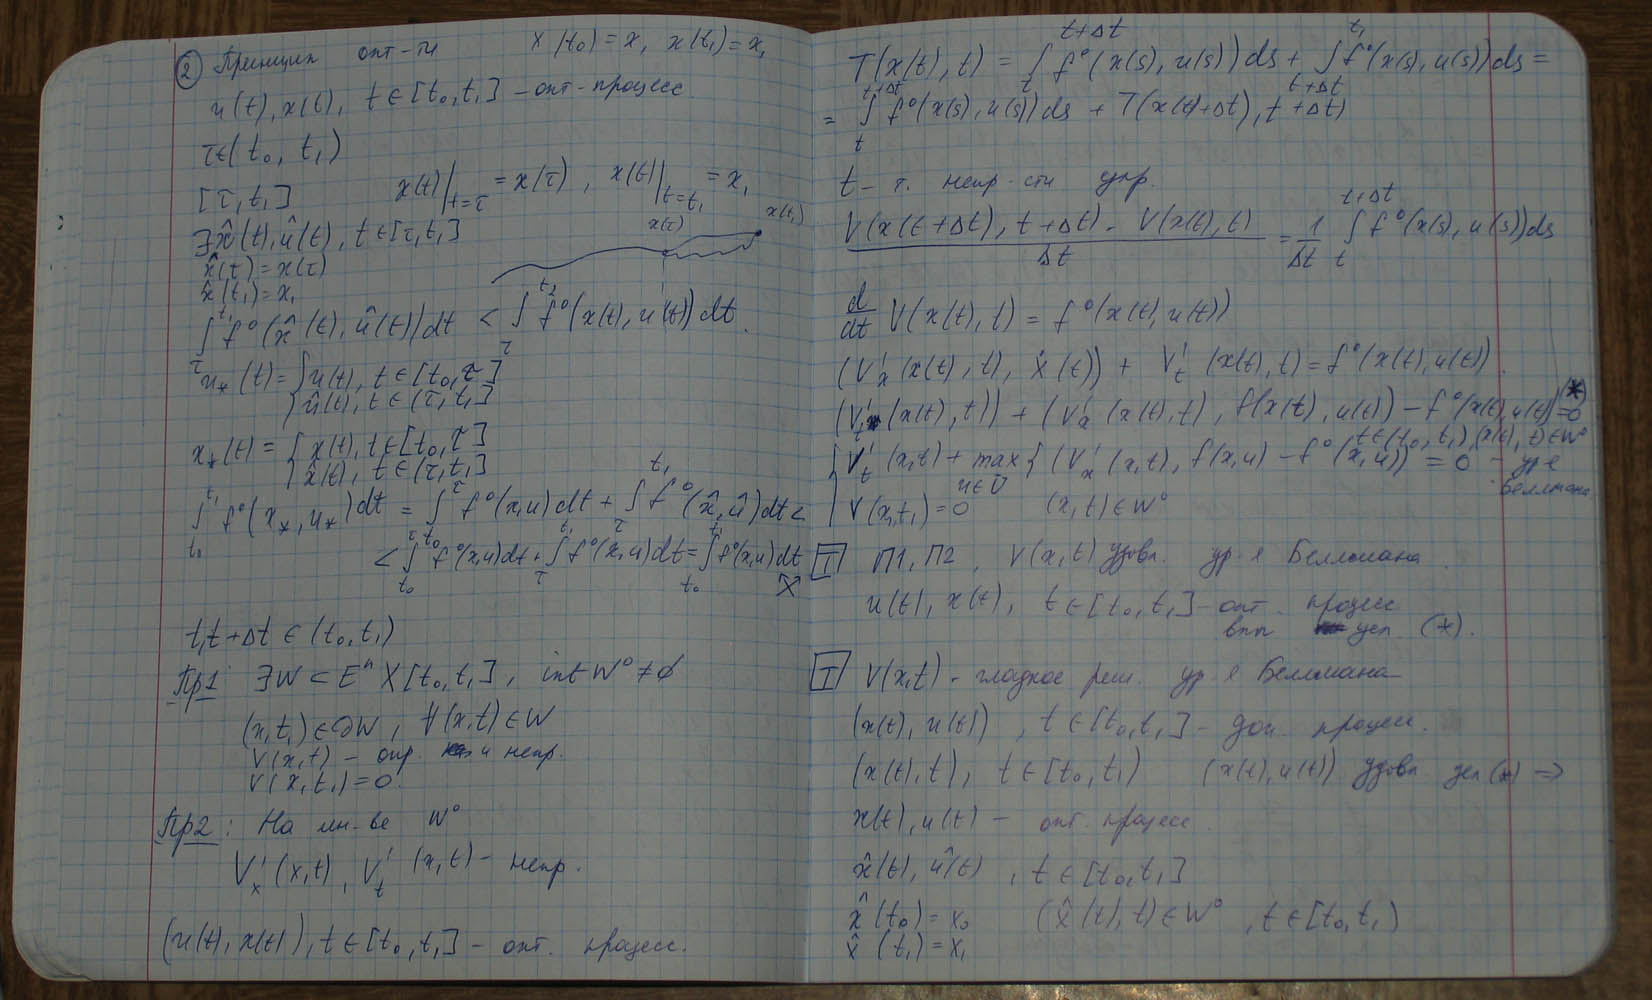 ② Принцип опт-ти x(t₀) = x, x(t₁) = x₁
u(t), x(t), t ∈ [t₀, t₁] – опт-процесс
τ ∈ (t₀, t₁)
[τ, t₁] x(t)|_{t=τ} = x(τ), x(t)|_{t=t₁} = x₁
x(τ) x(t₁)
∃ x̂(t), û(t), t ∈ [τ, t₁]
x̂(τ) = x(τ)
x̂(t₁) = x₁
∫_τ^{t₁} f⁰(x̂(t), û(t)) dt < ∫_τ^{t₂} f⁰(x(t), u(t)) dt.
u_*(t) = { u(t), t ∈ [t₀, τ]
û(t), t ∈ (τ, t₁]
x_*(t) = { x(t), t ∈ [t₀, τ]
x̂(t), t ∈ (τ, t₁]
∫_{t₀}^{t₁} f⁰(x_*, u_*) dt = ∫_{t₀}^{τ} f⁰(x, u) dt + ∫_τ^{t₁} f⁰(x̂, û) dt <
< ∫_{t₀}^{τ} f⁰(x, u) dt + ∫_τ^{t₁} f⁰(x, u) dt = ∫_{t₀}^{t₁} f⁰(x, u) dt
t, t + Δt ∈ (t₀, t₁)
Пр1: ∃ W ⊂ Eⁿ X [t₀, t₁], int W⁰ ≠ ∅
(x, t₁) ∈ ∂W, ∀(x, t) ∈ W
V(x, t) – опр. и непр.
V(x, t₁) = 0.
Пр2: На мн-ве W⁰
V'ₓ(x, t), V'ₜ(x, t) – непр.
(u(t), x(t)), t ∈ [t₀, t₁] – опт. процесс.
T(x(t), t) = ∫_t^{t+Δt} f⁰(x(s), u(s)) ds + ∫_{t+Δt}^{t₁} f⁰(x(s), u(s)) ds =
= ∫_t^{t+Δt} f⁰(x(s), u(s)) ds + T(x(t)+Δt), t + Δt)
t – т. непр-сти упр.
(V(x(t+Δt), t+Δt) - V(x(t), t))/Δt = 1/Δt ∫_t^{t+Δt} f⁰(x(s), u(s)) ds
d/dt V(x(t), t) = f⁰(x(t), u(t))
(V'ₓ(x(t), t), ẋ(t)) + V'ₜ(x(t), t) = f⁰(x(t), u(t)).
(V'ₜ(x(t), t)) + (V'ₓ(x(t), t), f(x(t), u(t)) – f⁰(x(t), u(t)) = 0 (*)
t ∈ (t₀, t₁), (x(t), t) ∈ W⁰
{ V'ₜ(x, t) + max_{u∈U} { (V'ₓ(x, t), f(x, u) – f⁰(x, u)) = 0 – ур-е Беллмана
V(x, t₁) = 0 (x, t) ∈ W⁰
[T] П1, П2, V(x, t) удовл. ур-я Беллмана.
u(t), x(t), t ∈ [t₀, t₁] – опт. процесс
вып усл. (*).
[T] V(x, t) – гладкое реш. ур-я Беллмана
(x(t), u(t)), t ∈ [t₀, t₁] – доп. процесс.
(x(t), t), t ∈ [t₀, t₁) (x(t), u(t)) удовл усл (*) ⇒
x(t), u(t) – опт. процесс.
x̂(t), û(t), t ∈ [t₀, t₁]
x̂(t₀) = x₀ (x̂(t), t) ∈ W⁰, t ∈ [t₀, t₁)
x̂(t₁) = x₁